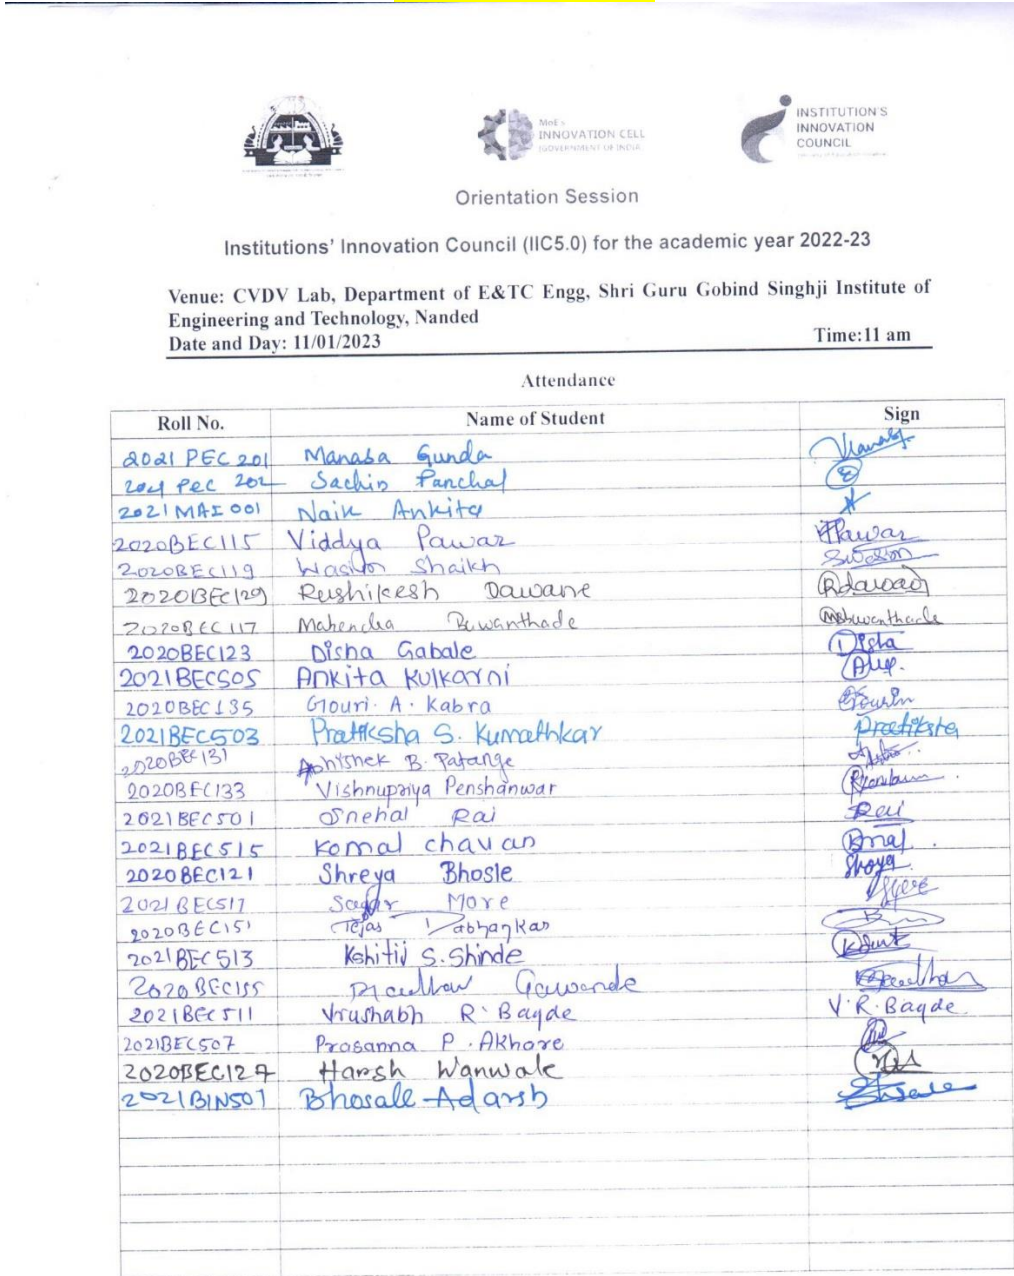 MoE's
INNOVATION CELL
(GOVERNMENT OF INDIA)
INSTITUTION'S
INNOVATION
COUNCIL
Orientation Session
Institutions' Innovation Council (IIC5.0) for the academic year 2022-23
Venue: CVDV Lab, Department of E&TC Engg, Shri Guru Gobind Singhji Institute of
Engineering and Technology, Nanded
Date and Day: 11/01/2023 Time:11 am
Attendance
Roll No. Name of Student Sign
2021 PEC 201 Manasa Gunda
2021 PEC 202 Sachin Panchal
2021 MAI 001 Naik Ankita
2020BEC115 Viddya Pawar Pawar
2020BEC119 Shaikh
2020BEC129 Rushikesh Dawane
2020BEC117 Mahendra Buwanthade
2020BEC123 Disha Gabale Disha
2021BEC505 Ankita Kulkarni
2020BEC135 Gouri. A. Kabra
2021BEC503 Pratiksha S. Kumathkar Pratiksha
2020BEC131 Abhishek B. Patange
2020BEC133 Vishnupriya Penshanwar
2021BEC501 Snehal Rai Rai
2021BEC515 Komal chavan
2020BEC121 Shreya Bhosle Shreya
2021BEC517 Sagar More
2020BEC151 Tejas Dabhankar
2021BEC513 Kshitij S. Shinde
2020BEC155 Gawande
2021BEC511 Vrushabh R. Bagde V.R.Bagde
2021BEC507 Prasanna P. Akhare
2020BEC127 Harsh Wanwale
2021BIN501 Bhosale Adarsh